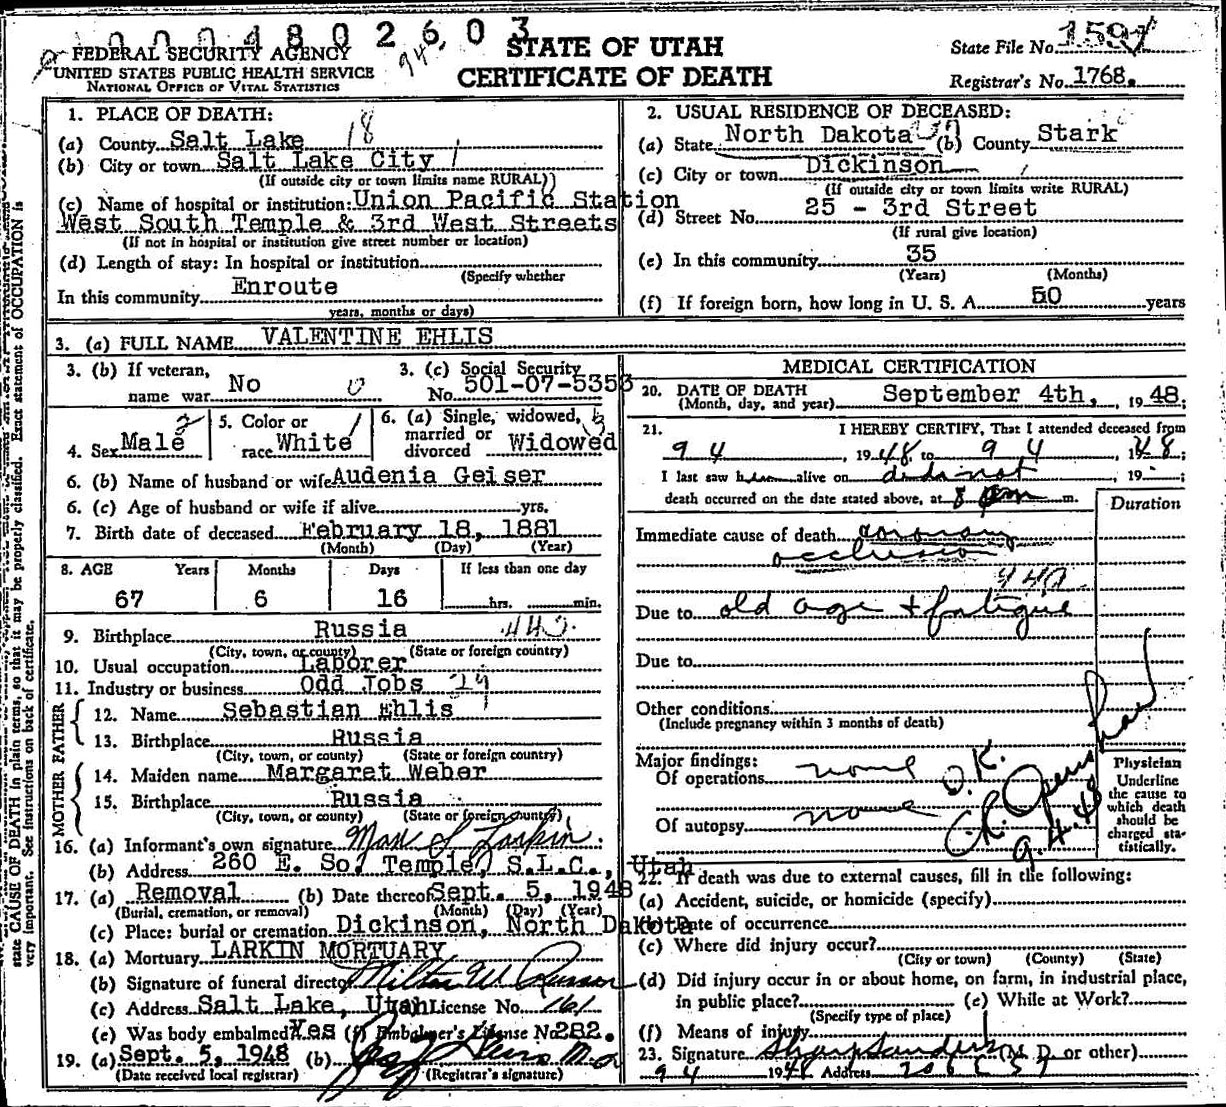 0004802603
FEDERAL SECURITY AGENCY
UNITED STATES PUBLIC HEALTH SERVICE
NATIONAL OFFICE OF VITAL STATISTICS
STATE OF UTAH
CERTIFICATE OF DEATH
State File No. 1591
Registrar's No. 1768.
1. PLACE OF DEATH:
(a) County Salt Lake 18
(b) City or town Salt Lake City 1
(If outside city or town limits name RURAL)
(c) Name of hospital or institution: Union Pacific Station
West South Temple & 3rd West Streets
(If not in hospital or institution give street number or location)
(d) Length of stay: In hospital or institution
(Specify whether
In this community Enroute
years, months or days)
2. USUAL RESIDENCE OF DECEASED:
(a) State North Dakota (b) County Stark
(c) City or town Dickinson
(If outside city or town limits write RURAL)
(d) Street No. 25 - 3rd Street
(If rural give location)
(e) In this community 35
(Years) (Months)
(f) If foreign born, how long in U. S. A. 50 years
3. (a) FULL NAME VALENTINE EHLIS
3. (b) If veteran,
name war No 0
3. (c) Social Security
No. 501-07-5353
4. Sex Male 2
5. Color or
race White 1
6. (a) Single, widowed,
married or
divorced Widowed
6. (b) Name of husband or wife Audenia Geiser
6. (c) Age of husband or wife if alive yrs.
7. Birth date of deceased February 18, 1881
(Month) (Day) (Year)
8. AGE Years Months Days If less than one day
67 6 16 hrs. min.
9. Birthplace Russia
(City, town, or county) (State or foreign country)
10. Usual occupation Laborer
11. Industry or business Odd Jobs
FATHER
12. Name Sebastian Ehlis
13. Birthplace Russia
(City, town, or county) (State or foreign country)
MOTHER
14. Maiden name Margaret Weber
15. Birthplace Russia
(City, town, or county) (State or foreign country)
16. (a) Informant's own signature Max S Larkin
(b) Address 260 E. So. Temple, S.L.C., Utah
17. (a) Removal (b) Date thereof Sept. 5, 1948
(Burial, cremation, or removal) (Month) (Day) (Year)
(c) Place: burial or cremation Dickinson, North Dakota
18. (a) Mortuary LARKIN MORTUARY
(b) Signature of funeral director Milton W.
(c) Address Salt Lake, Utah License No. 161
(e) Was body embalmed? Yes (f) Embalmer's License No. 282.
19. (a) Sept. 5, 1948 (b)
(Date received local registrar) (Registrar's signature)
MEDICAL CERTIFICATION
20. DATE OF DEATH
(Month, day, and year) September 4th, 1948;
21. I HEREBY CERTIFY, That I attended deceased from
9 4, 1948 to 9 4, 148;
I last saw him alive on did not, 19 ;
death occurred on the date stated above, at 8 pm m.
Duration
Immediate cause of death coronary
occlusion
Due to old age + fatigue
Due to
Other conditions
(Include pregnancy within 3 months of death)
Major findings:
Of operations none
Of autopsy none
O.K.
9.4.48
Physician
Underline
the cause to
which death
should be
charged sta-
tistically.
22. If death was due to external causes, fill in the following:
(a) Accident, suicide, or homicide (specify)
(b) Date of occurrence
(c) Where did injury occur?
(City or town) (County) (State)
(d) Did injury occur in or about home, on farm, in industrial place,
in public place? (e) While at Work?
(Specify type of place)
(f) Means of injury
23. Signature (M. D. or other)
9 4 1948 Address
state CAUSE OF DEATH in plain terms, so that it may be properly classified. Exact statement of OCCUPATION is
very important. See instructions on back of certificate.